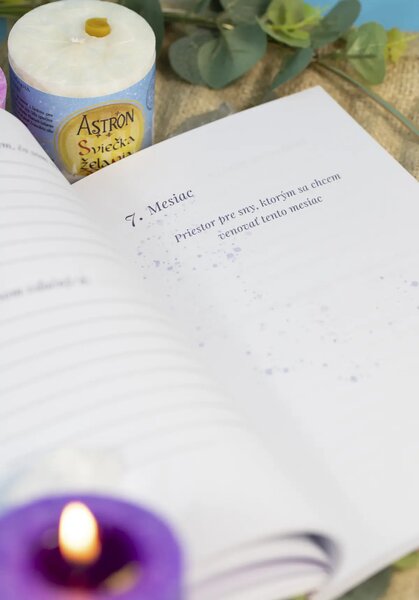 ASTRON
Sviečka
želania
7. Mesiac
Priestor pre sny, ktorým sa chcem
venovať tento mesiac